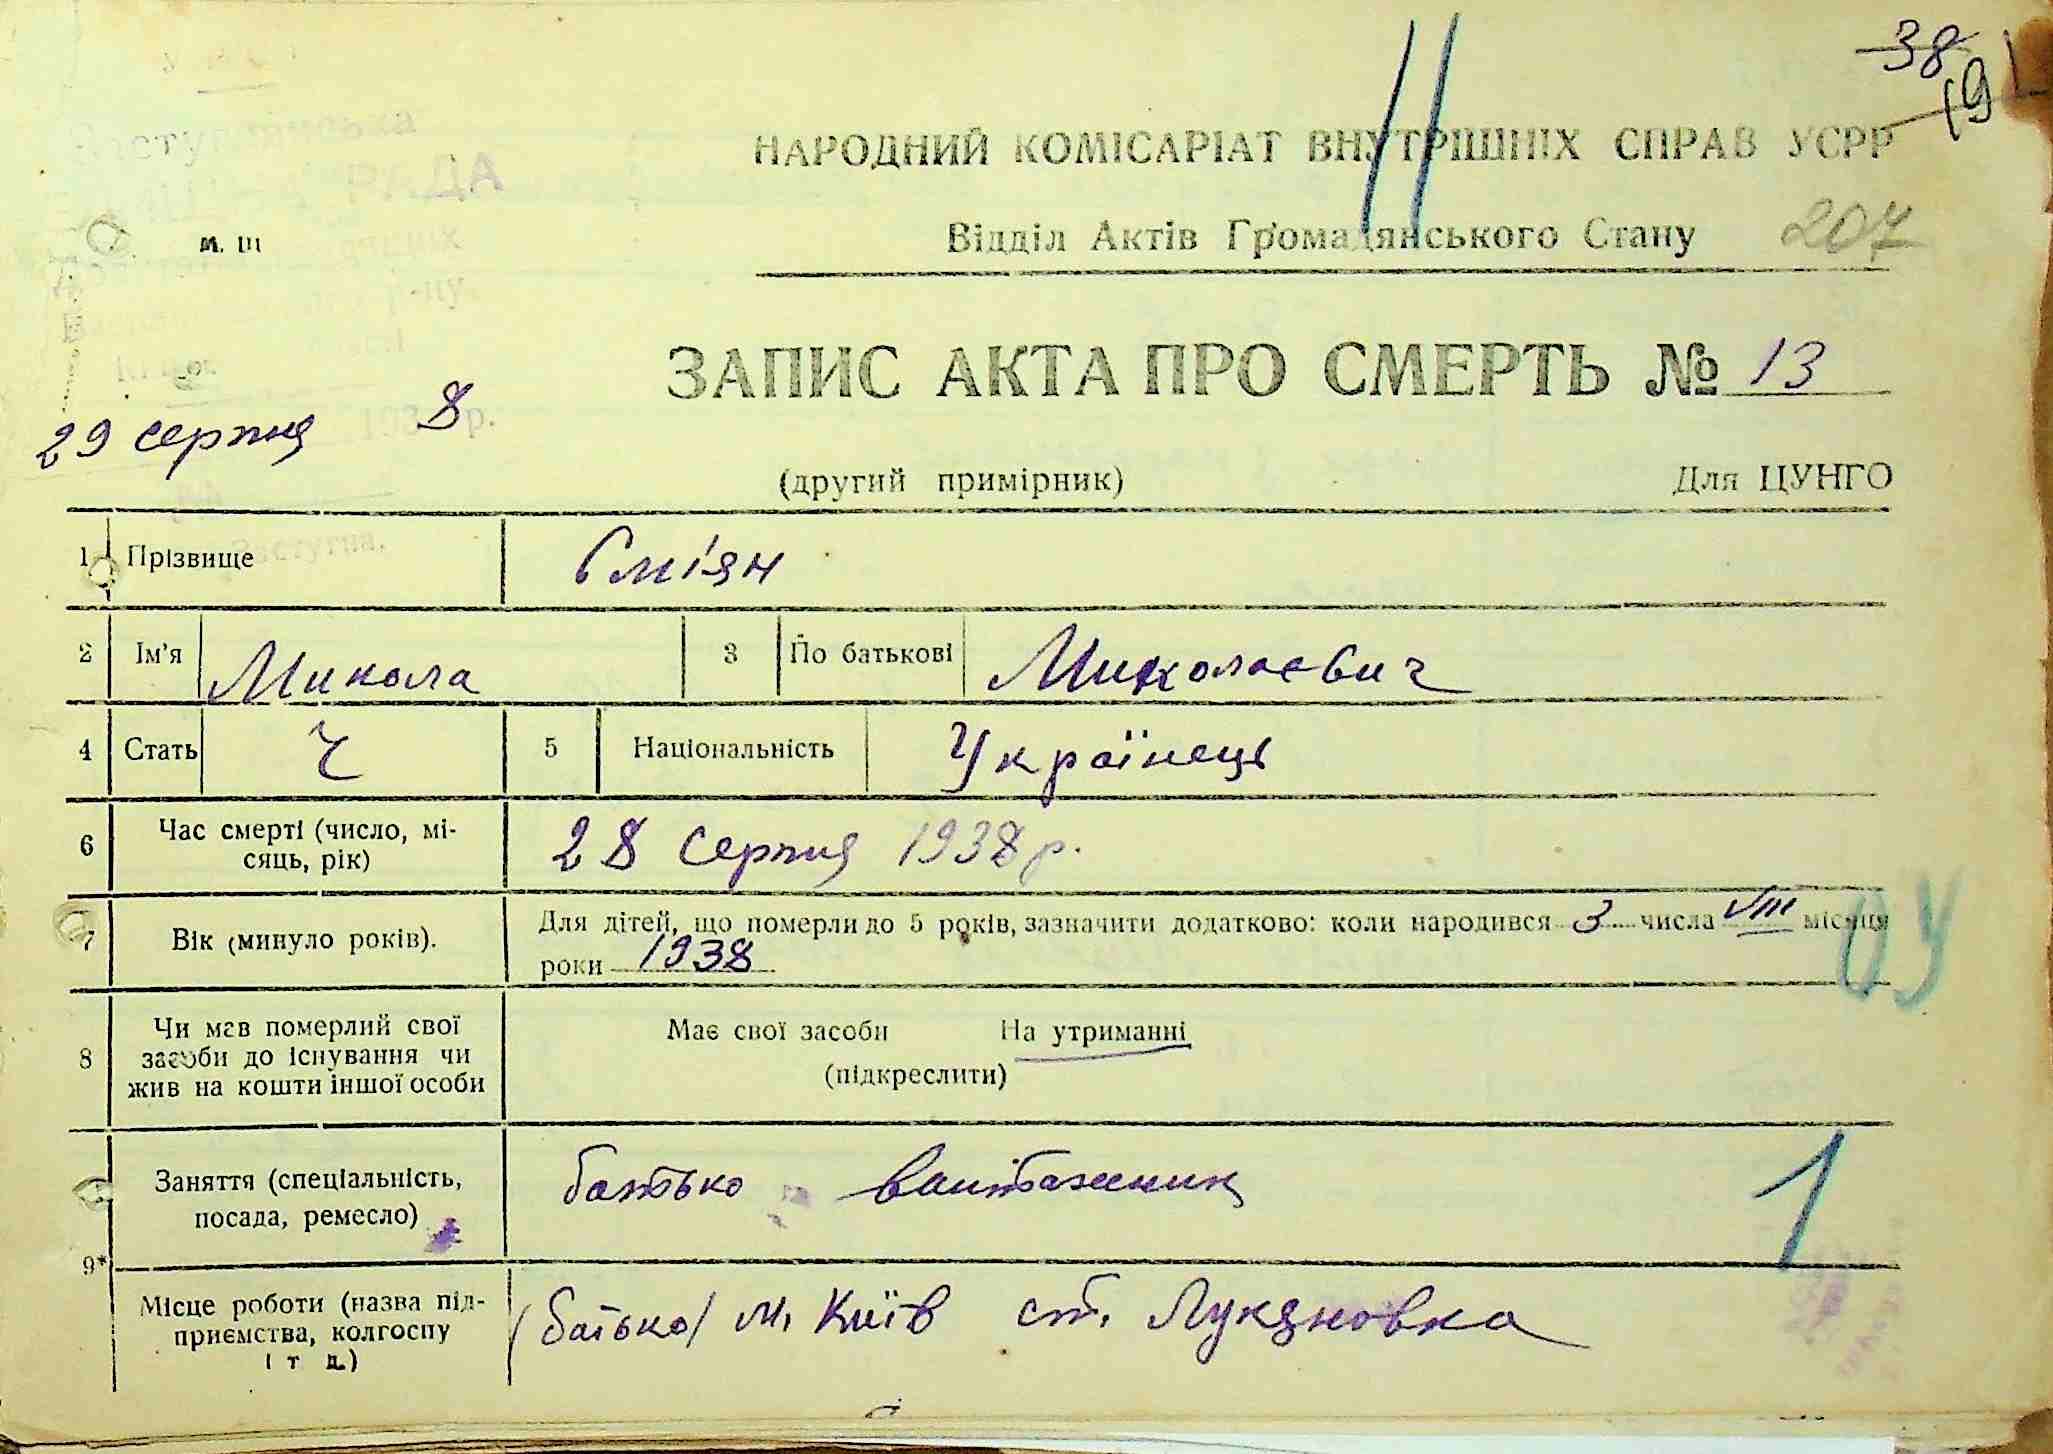 38
191
НАРОДНИЙ КОМІСАРІАТ ВНУТРІШНІХ СПРАВ УСРР
РАДА
м. Ш
Відділ Актів Громадянського Стану 207
ЗАПИС АКТА ПРО СМЕРТЬ № 13
29 серпня 1938 р.
(другий примірник) Для ЦУНГО
1 Прізвище Сміян
2 Ім'я Микола 3 По батькові Миколаєвич
4 Стать Ч 5 Національність Українець
6 Час смерті (число, мі-
сяць, рік) 28 серпня 1938 р.
7 Вік (минуло років). Для дітей, що померли до 5 років, зазначити додатково: коли народився 3 числа VIII місяця
роки 1938
8 Чи мав померлий свої
засоби до існування чи
жив на кошти іншої особи
Має свої засоби На утриманні
(підкреслити)
Заняття (спеціальність,
посада, ремесло) батько вантажник
1
9*
Місце роботи (назва під-
приємства, колгоспу
і т д.) (батько) м. Київ ст. Лукяновка